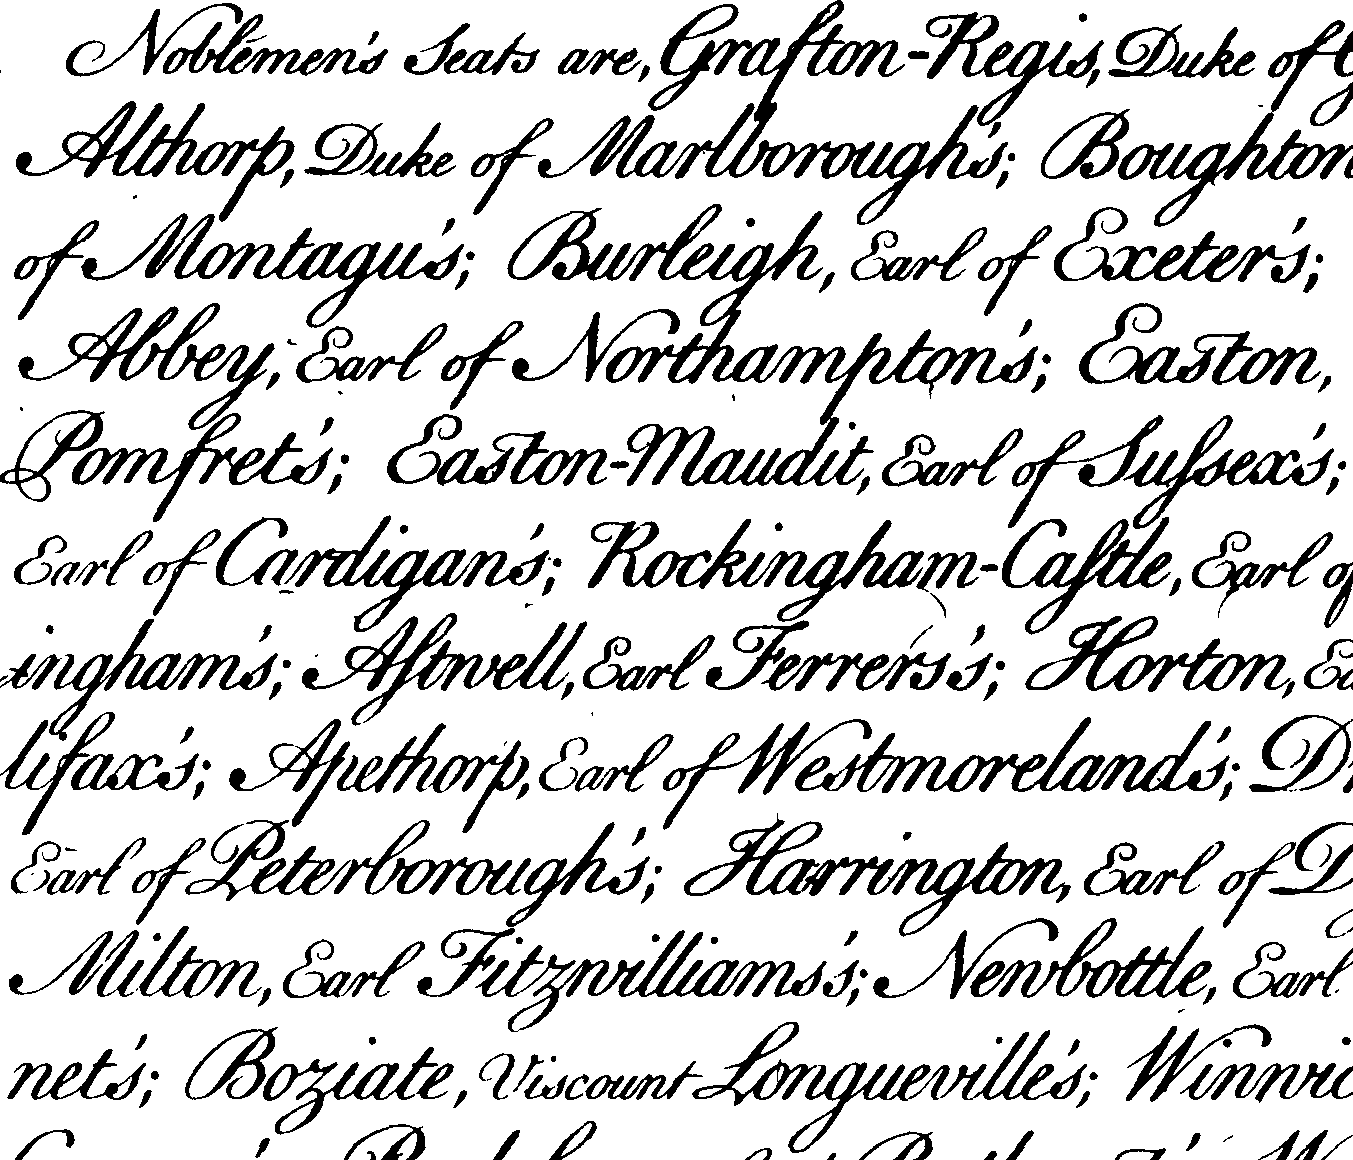 Noblemen's Seats are, Grafton-Regis, Duke of G
Althorp, Duke of Marlborough's; Boughton
of Montagu's; Burleigh, Earl of Exeter's;
Abbey, Earl of Northampton's; Easton,
Pomfret's; Easton-Maudit, Earl of Suſsex's;
Earl of Cardigan's; Rockingham-Caſtle, Earl of
ingham's; Aſtwell, Earl Ferrers's; Horton, Ea
lifax's; Apethorp, Earl of Westmoreland's; D
Earl of Peterborough's; Harrington, Earl of D
Milton, Earl Fitzwilliams's; Newbottle, Earl
net's; Boziate, Viscount Longueville's; Winwic